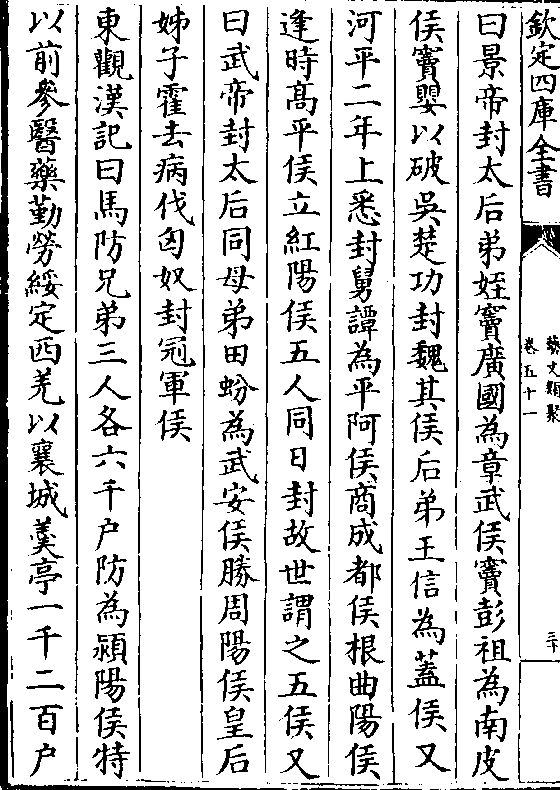 欽定四庫全書
藝文類聚
卷五十一
三十
曰景帝封太后弟姪竇廣國為章武侯竇彭祖為南皮
侯竇嬰以破吳楚功封魏其侯后弟王信為蓋侯又
河平二年上悉封舅譚為平阿侯商成都侯根曲陽侯
逢時髙平侯立紅陽侯五人同日封故世謂之五侯又
曰武帝封太后同母弟田蚡為武安侯勝周陽侯皇后
姊子霍去病伐匈奴封冠軍侯
東觀漢記曰馬防兄弟三人各六千户防為潁陽侯特
以前參醫藥勤勞綏定西羌以襄城羮亭一千二百户